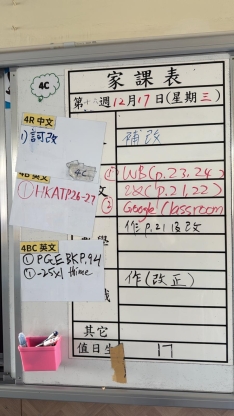 4C
家課表
第十六週12月17日(星期三)
4R 中文
1) 詞改
補改
4C
英文
① HKATP26-27
① WB(p.23,24)
② (p.21,22)
② Google Classroom
學
作 p.21 改
4BC 英文
① PGEBKP.94
①
作(改正)
其它
值日生
17